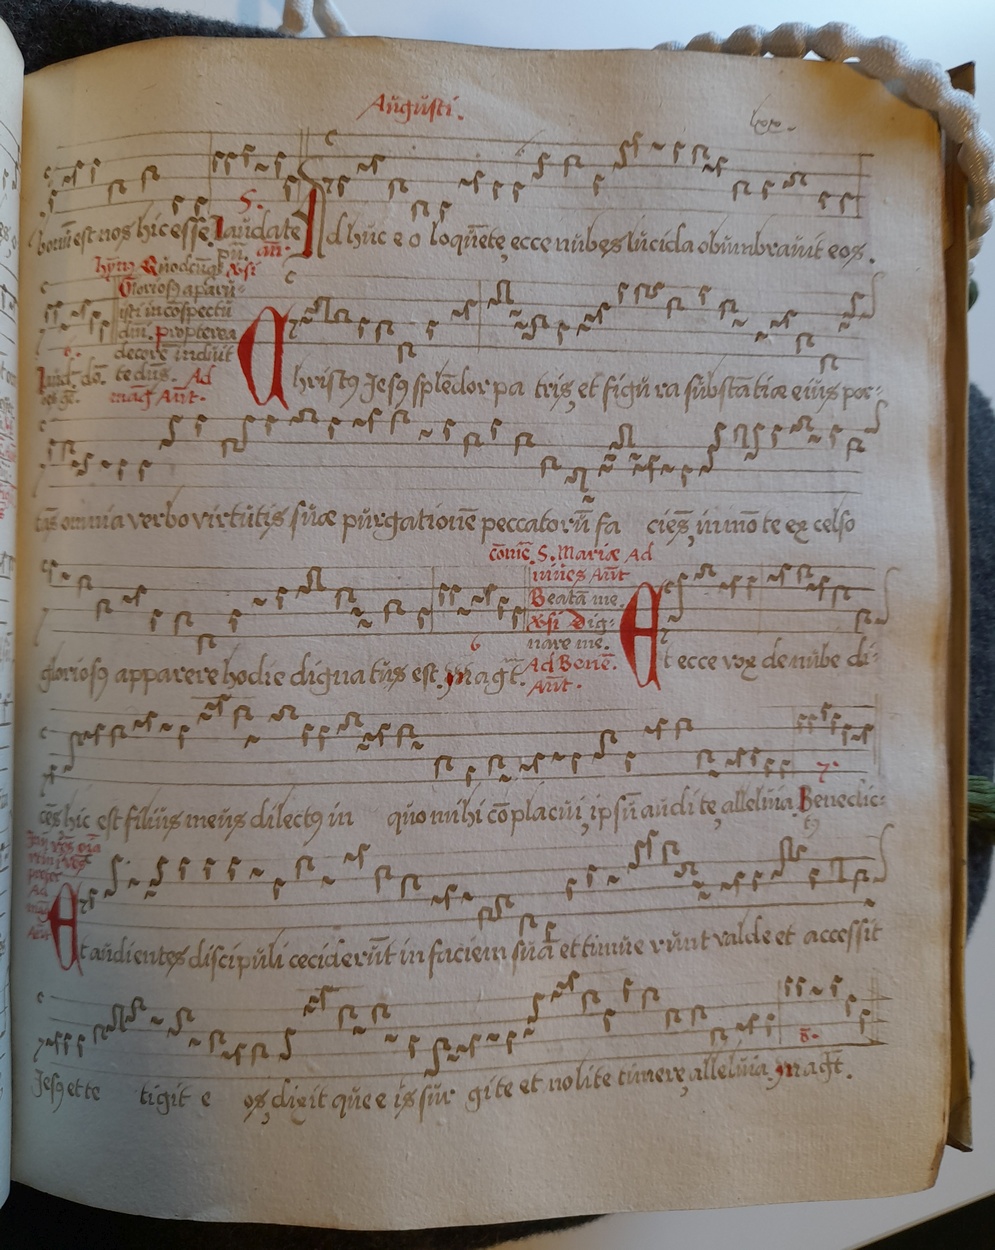 Augusti.
lxx.
bonū est nos hic esse. Laudate
S.
pu. an.
Adhuc e o loquēte, ecce nubes lucida obumbrauit eos.
hym Quodcūq x̄si
Gloriosꝰ aparu-
isti in cōspectu
dn̄i. propterea
decorē induit
te dūs. Ad
mag̃ Ant.
Christꝰ Jesꝰ splēdor pa tris, et figu ra substātiæ eius por-
tās omnia verbo virtutis suæ purgationē peccatorū fa ciēs, in mō te ex celso
cōmē S. Mariæ Ad
Ant
Beata me.
x̄si Dig-
nare me.
Ad Benē.
Ant.
gloriosꝰ apparere hodie dignatus est. Mag̃t. 6
Et ecce vox de nube di-
cēs hic est filius meus dilectꝰ in quo mihi cō placui, ipsū audi te, alleluia. Benedic-
tꝰ
7.
Ad
Et audientes discipuli ceciderūt in faciem suā et timue runt valde et accessit
Jesꝰ et te tigit e os, dixit que e is sur gite et nolite timere, alleluia. Mag̃t.
8.